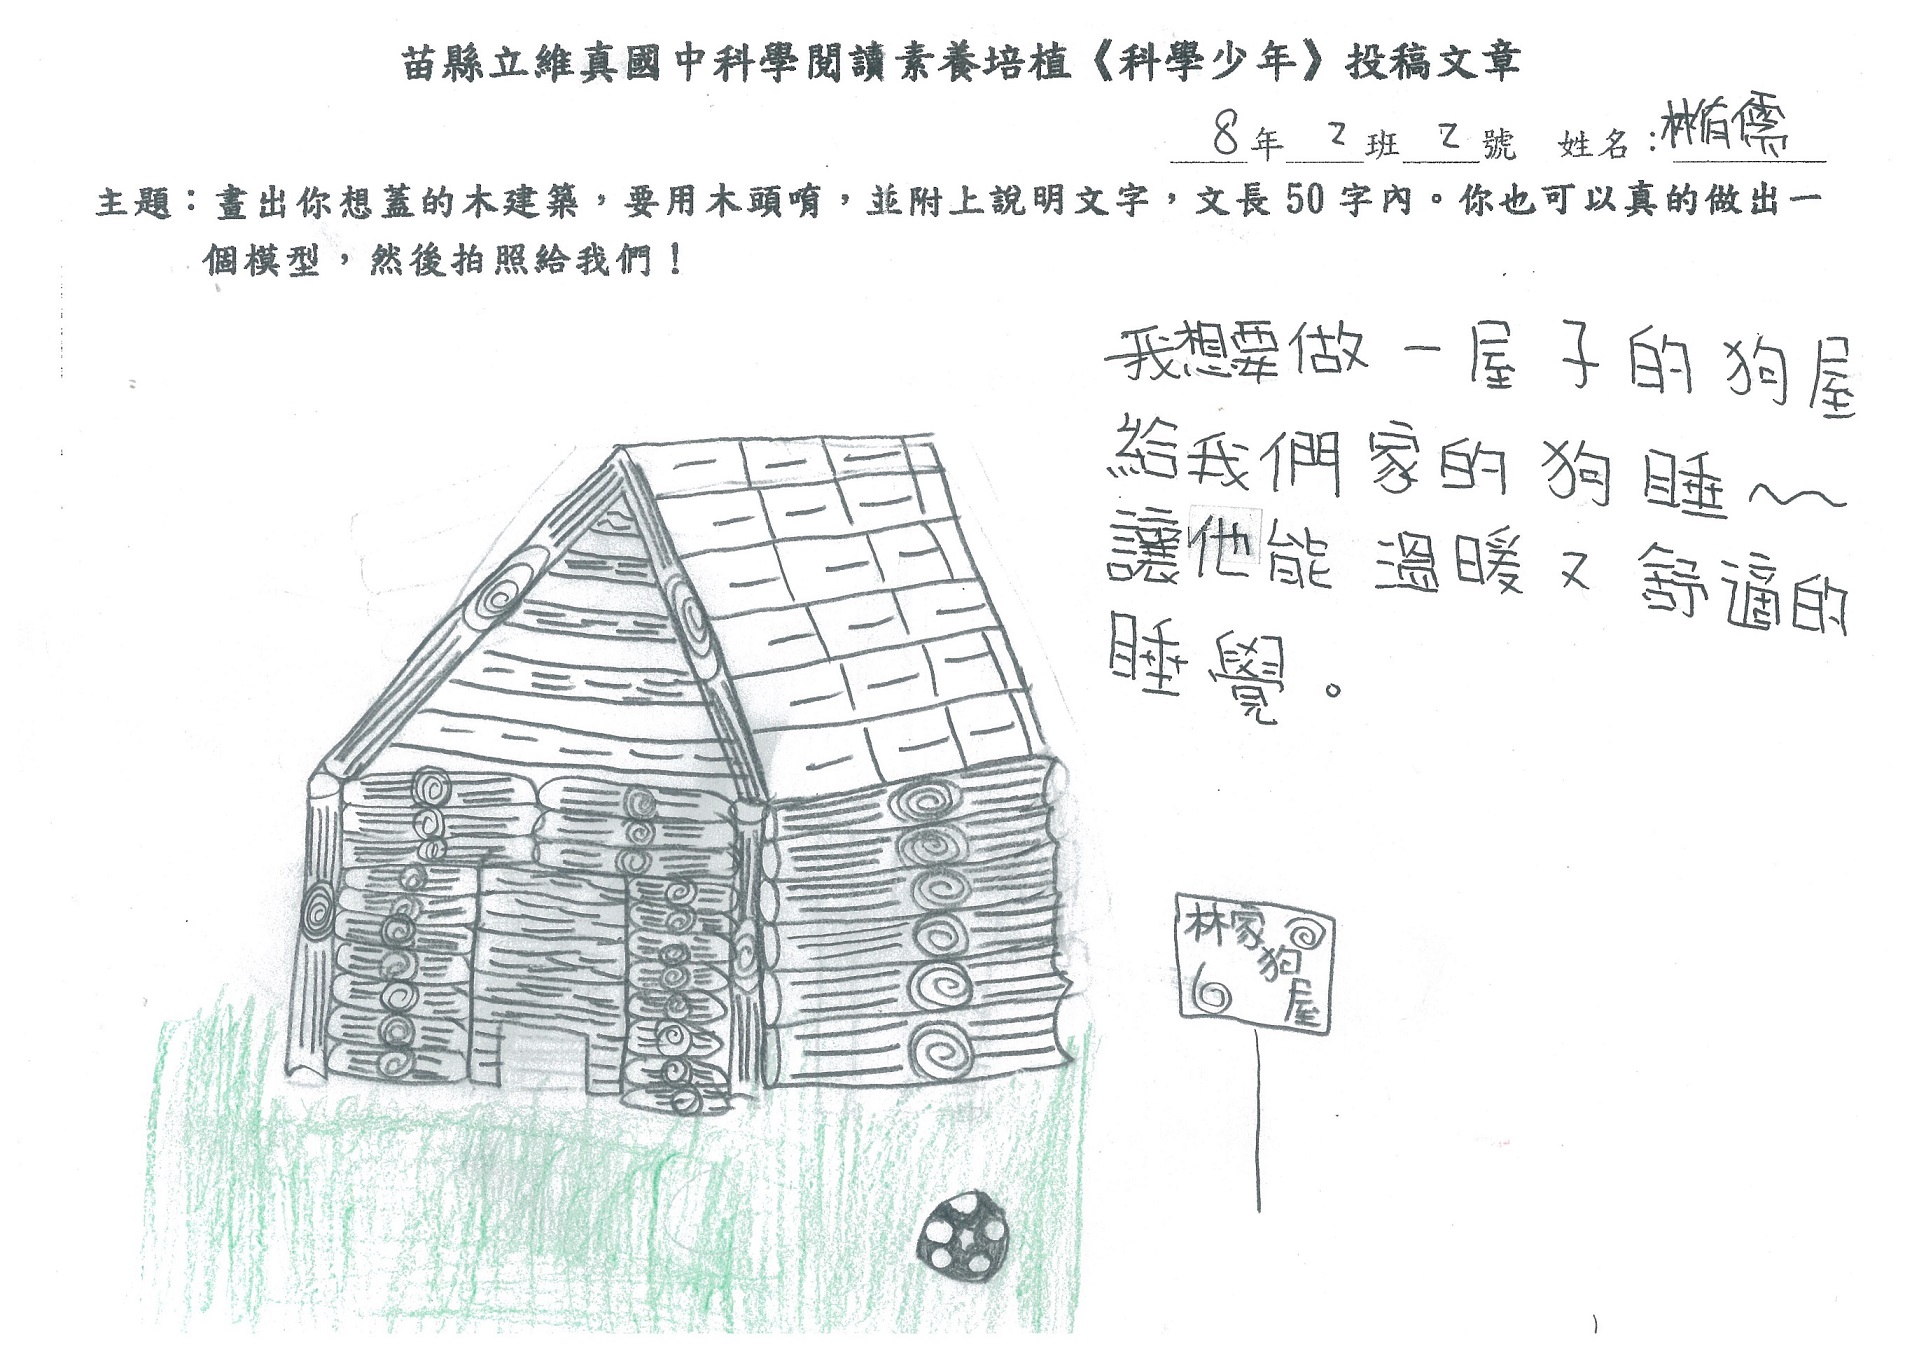 苗縣立維真國中科學閱讀素養培植《科學少年》投稿文章
8年2班2號 姓名:林侑儒
主題:畫出你想蓋的木建築,要用木頭唷,並附上說明文字,文長50字內。你也可以真的做出一
個模型,然後拍照給我們!
我想要做一屋子的狗屋
給我們家的狗睡~~
讓他能溫暖又舒適的
睡覺。
林家
狗
屋